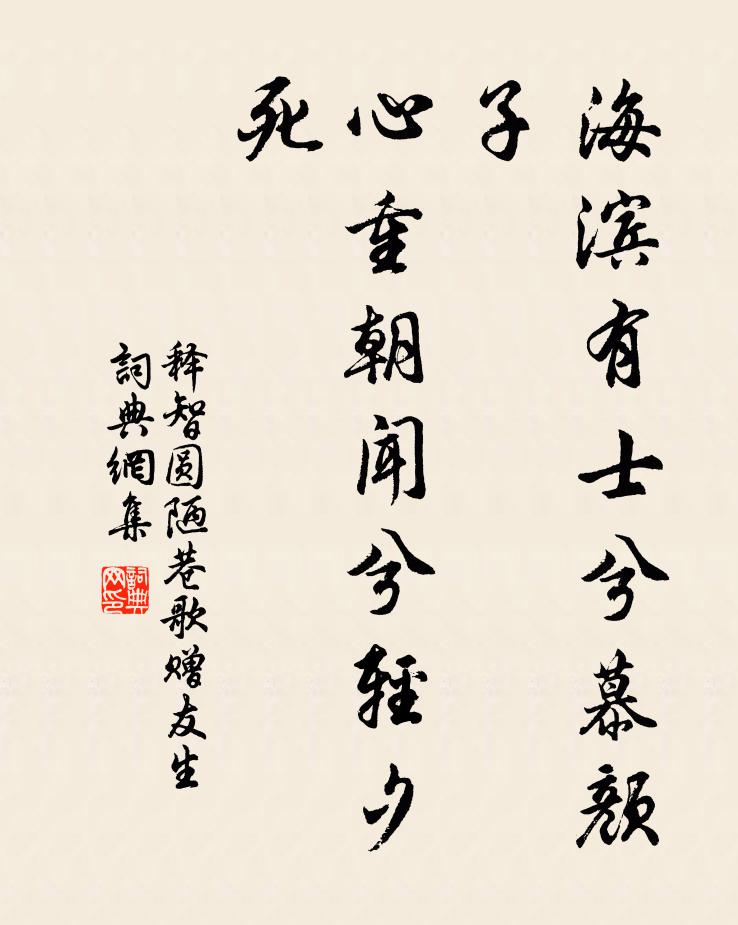 海滨有士兮慕颜
子
心重朝闻兮轻夕
死
释智圆陋巷歌赠友生
詞典網集
詞典
网印